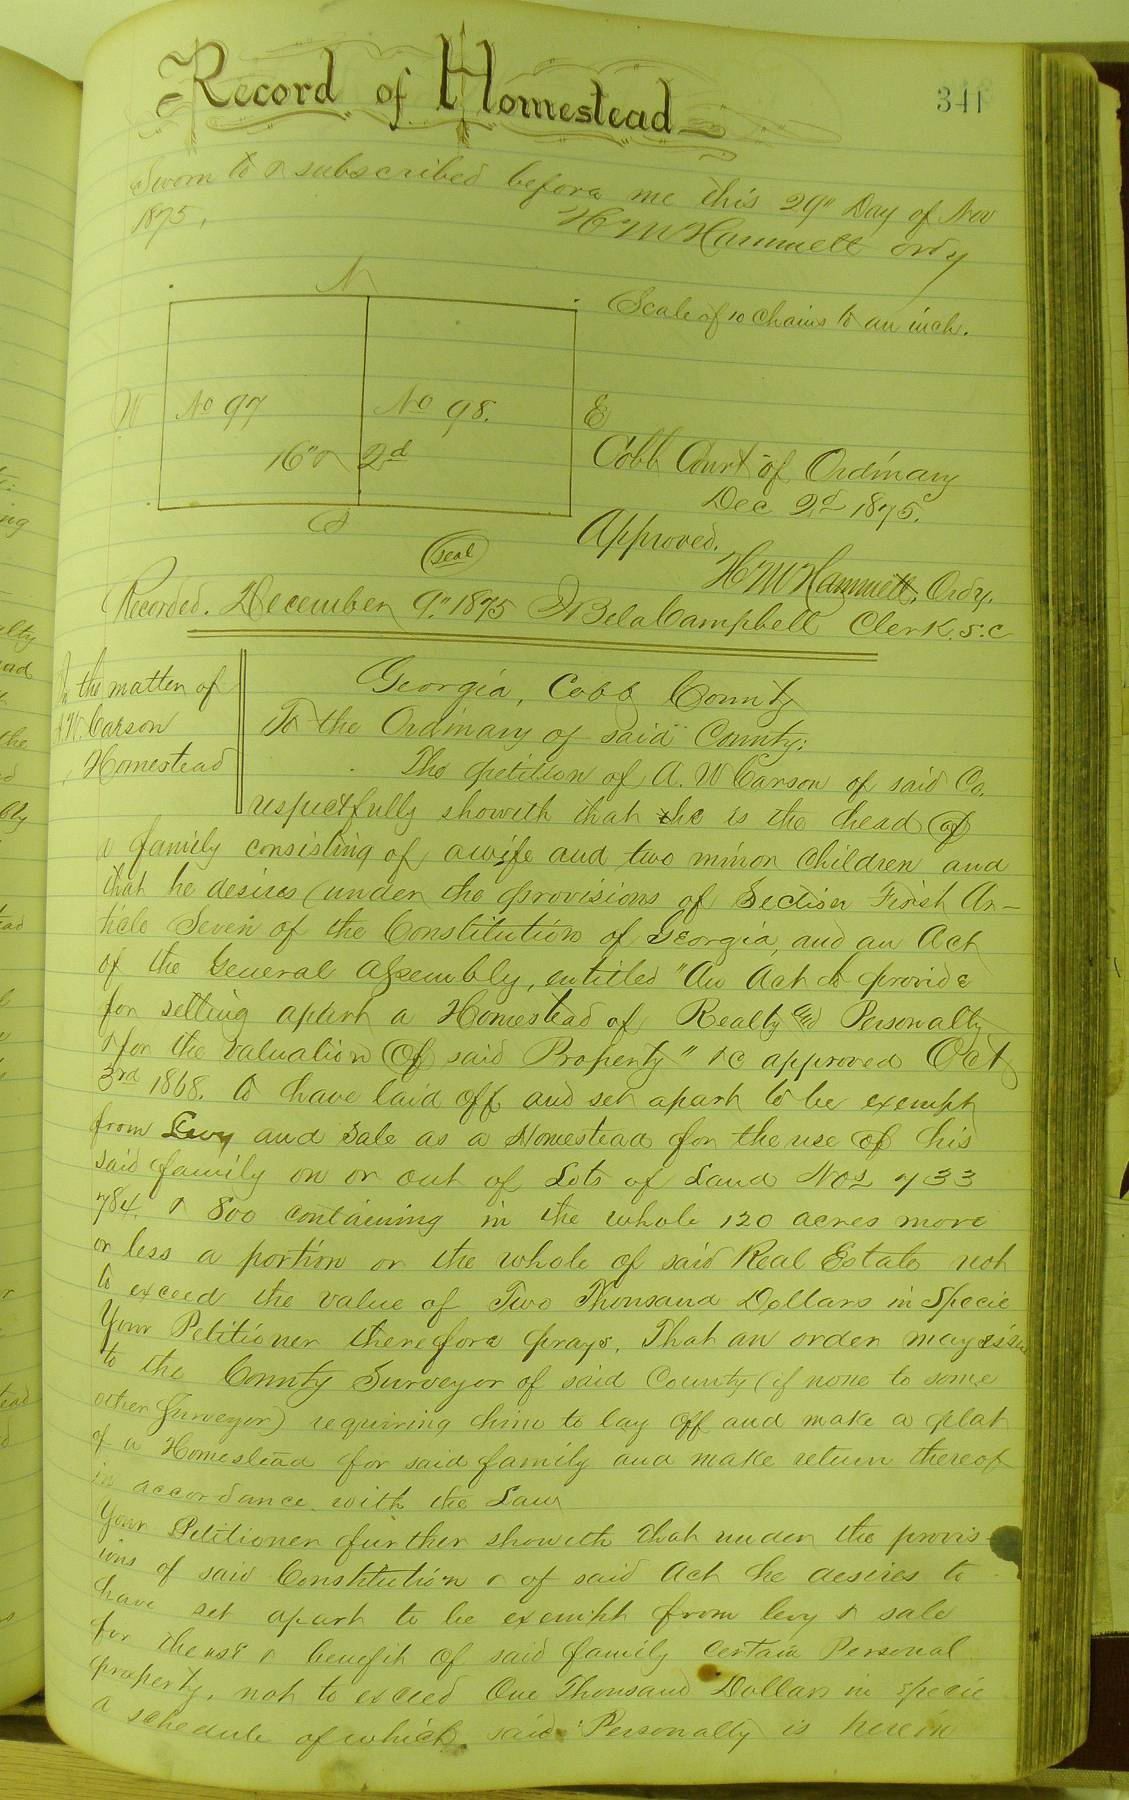 Record of Homestead
341
Sworn to & subscribed before me this 29" Day of Nov
1875.
H M Hammett Ordy
N
Scale of 10 chains to an inch.
W
No 97
No 98.
E
16" & 2d
S
Cobb Court of Ordinary
Dec 2d 1875.
Approved.
H M Hammett, Ordy.
(seal)
Recorded. December 9" 1875 J Bela Campbell Clerk. S. C
In the matter of
A.W. Carson
Homestead
Georgia, Cobb County
To the Ordinary of said County:
The petition of A. W Carson of said Co.
respectfully showeth that he is the head of
a family consisting of a wife and two minor children and
that he desires (under the provisions of Section First Ar-
ticle Seven of the Constitution of Georgia, and an Act
of the General Assembly, entitled "An Act to provide
for setting apart a Homestead of Realty and Personalty
& for the valuation of said Property" &c approved Oct
3rd 1868. to have laid off and set apart to be exempt
from Levy and Sale as a Homestead for the use of his
said family on or out of Lots of Land Nos 733
784. & 800 containing in the whole 120 acres more
or less a portion or the whole of said Real Estate not
to exceed the value of Two Thousand Dollars in Specie
Your Petitioner therefore prays, That an order may issue
to the County Surveyor of said County (if none to some
other Surveyor) requiring him to lay off and make a plat
of a Homestead for said family and make return thereof
in accordance with the Law
Your Petitioner further showeth that under the provis-
ions of said Constitution & of said Act he desires to
have set apart to be exempt from levy & sale
for the use & benefit of said family certain Personal
property, not to exceed One Thousand Dollars in specie
a schedule of which said Personalty is herein